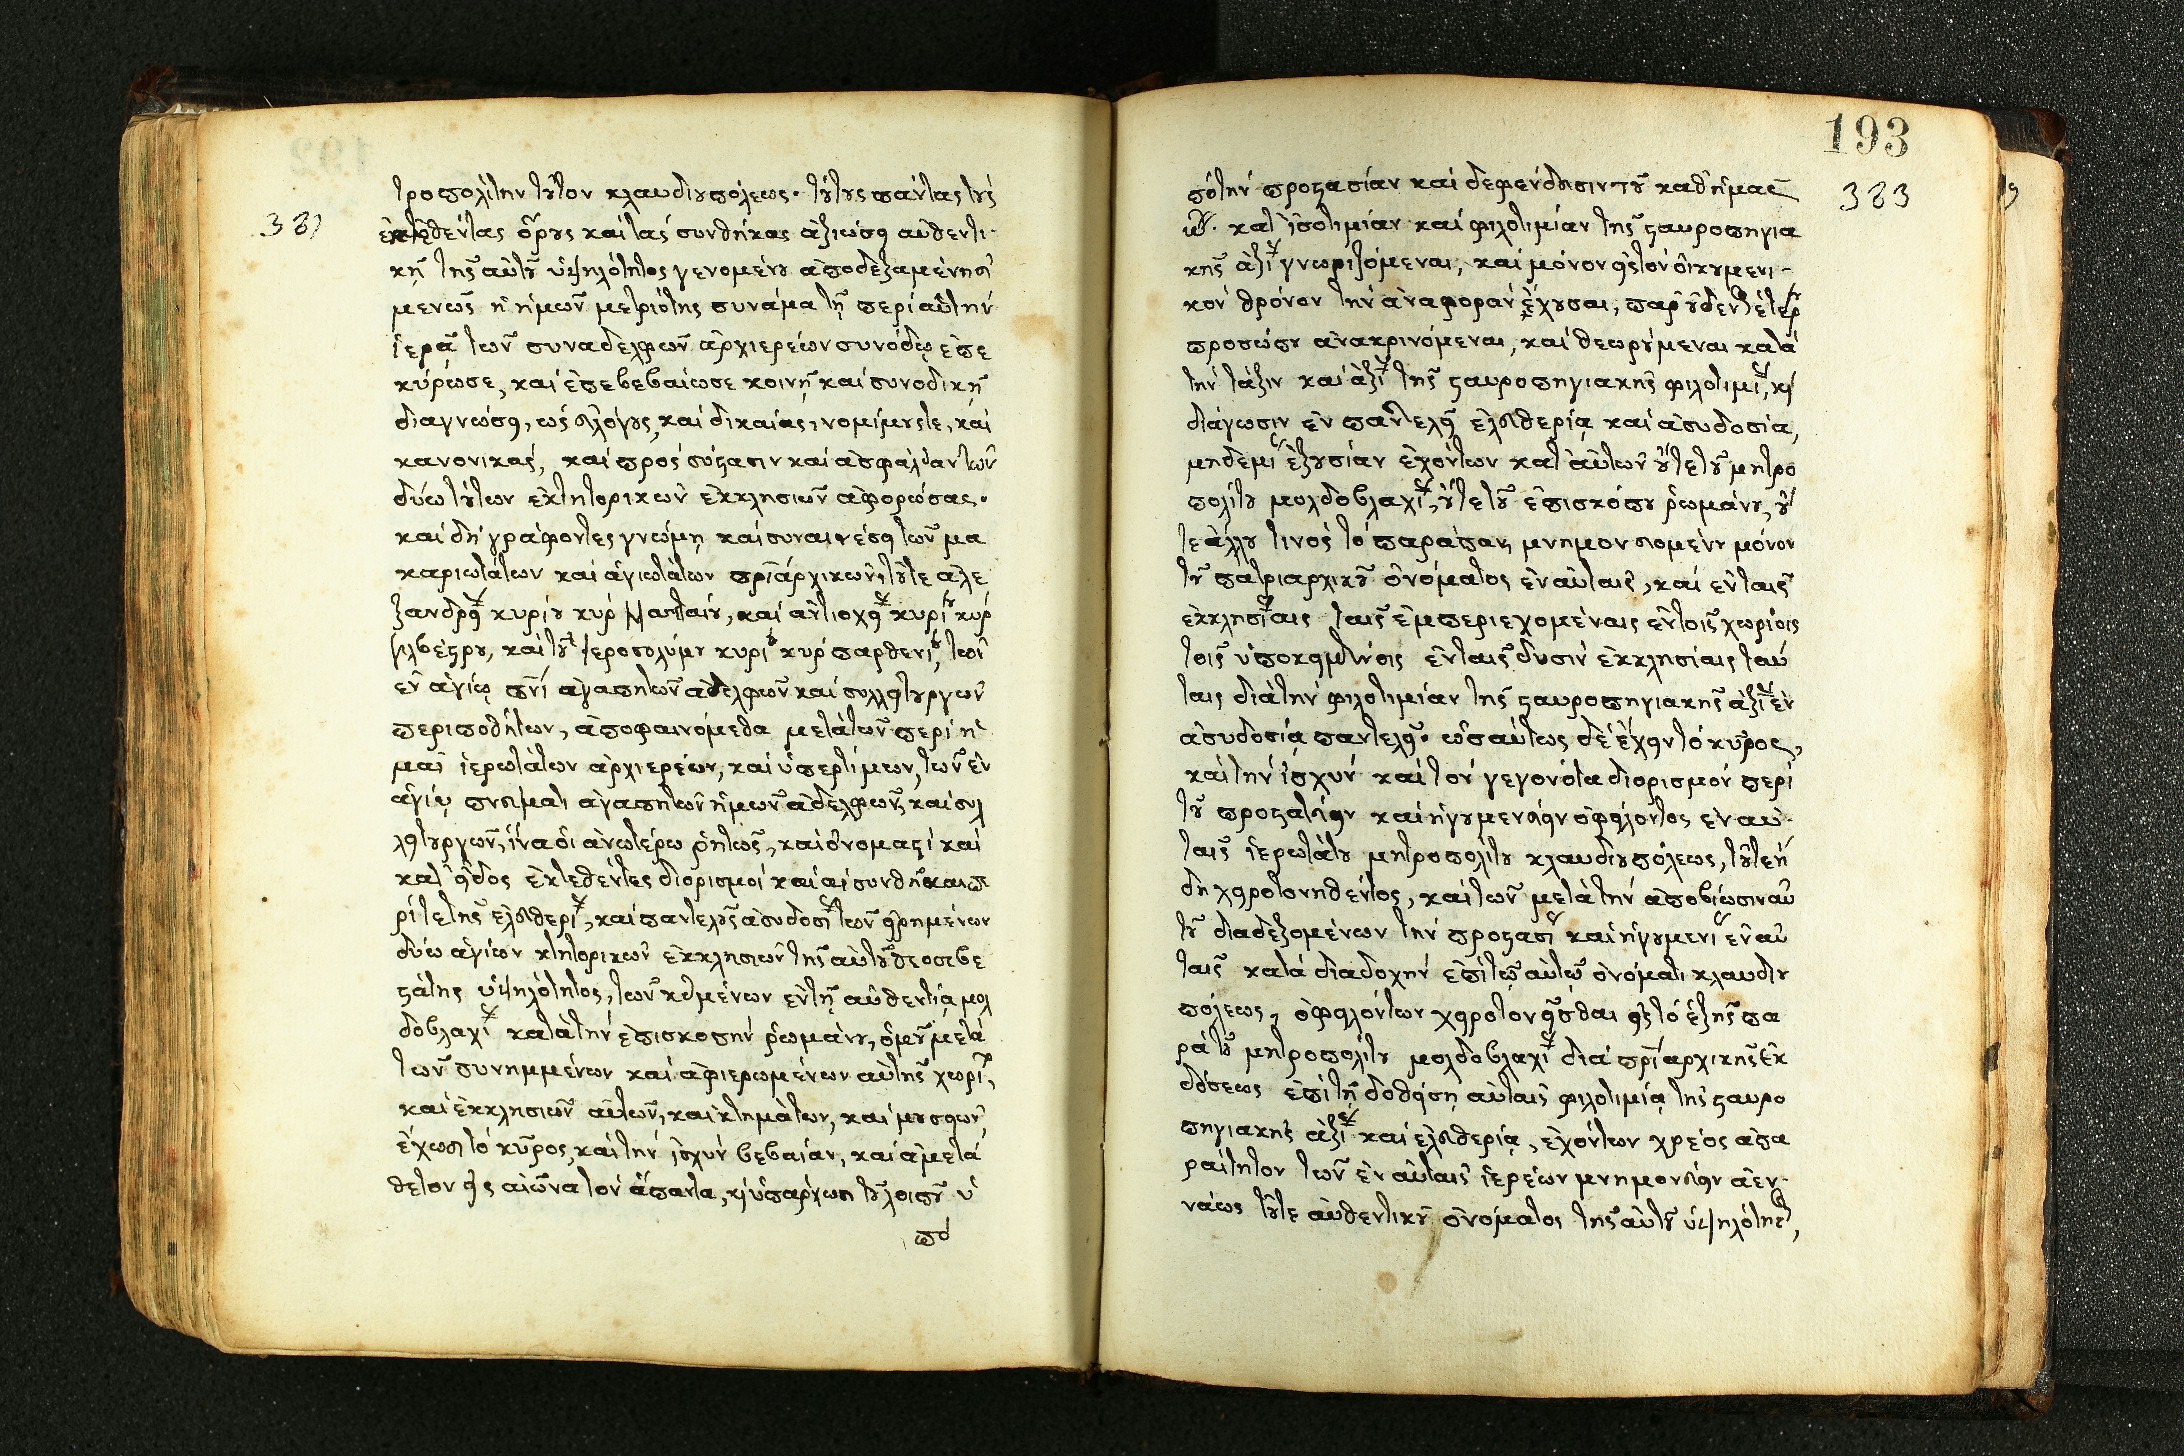 381
τροπολίτην τοῦτον κλαυδιουπόλεως· τούτους πάντας τοὺς
ἐκτεθέντας ὅρους καὶ τὰς συνθήκας ἀξιώσει αὐθεντι-
κῇ τῆς αὐτοῦ ὑψηλότητος γενομένου ἀποδεξαμένη
μενῶς ἡ ἡμῶν μετριότης συνάμα τῇ περὶ αὐτὴν
ἱερᾷ τῶν συναδελφῶν ἀρχιερέων συνόδῳ ἐπε
κύρωσε, καὶ ἐπεβεβαίωσε κοινῇ καὶ συνοδικῇ
διαγνώσει, ὡς εὐλόγους, καὶ δικαίας, νομίμους τε, καὶ
κανονικὰς, καὶ πρὸς σύστασιν καὶ ἀσφάλειαν τῶν
δύω τούτων ἐκκτητορικῶν ἐκκλησιῶν ἀφορώσας·
καὶ δὴ γράφοντες γνώμῃ καὶ συναινέσει τῶν μα
καριωτάτων καὶ ἁγιωτάτων πριαρχικῶν, τοῦτε ἀλε
ξανδρεί κυρίου κὺρ Ματθαίου, καὶ ἀντιοχεί κυρί κὺρ
Σιλβέστρου, καὶ τοῦ Ἱεροσολύμων κυρί κὺρ παρθενί, τῶν
ἐν ἁγίῳ πνι ἀγαπητῶν ἀδελφῶν καὶ συλλειτουργῶν
περιποθήτων, ἀποφαινόμεθα μετὰ τῶν περὶ ἡ
μᾶς ἱερωτάτων ἀρχιερέων, καὶ ὑπερτίμων, τῶν ἐν
ἁγίῳ πνεύματι ἀγαπητῶν ἡμῶν ἀδελφῶν, καὶ συλ
λειτουργῶν, ἵνα οἱ ἀνωτέρω ῥητῶς, καὶ ὀνομαστὶ καὶ
κατ' εἶδος ἐκτεθέντες διορισμοὶ καὶ αἱ συνθῆκαι πε
ρί τε τῆς ἐλευθερί, καὶ παντελοῦς ἀσυδοσί τῶν εἰρημένων
δύω ἁγίων κτητορικῶν ἐκκλησιῶν τῆς αὐτοῦ θεοσεβε
στάτης ὑψηλότητος, τῶν κειμένων ἐν τῇ αὐθεντίᾳ μολ
δοβλαχί κατὰ τὴν ἐπισκοπὴν ῥωμάνου, ὁμοῦ μετὰ
τῶν συνημμένων καὶ ἀφιερωμένων αὐτῆς χωρί,
καὶ ἐκκλησιῶν αὐτῶν, καὶ κτημάτων, καὶ μουσείων,
ἔχωσι τὸ κῦρος, καὶ τὴν ἰσχὺν βεβαίαν, καὶ ἀμετά
θετον εἰς αἰῶνα τὸν ἅπαντα, καὶ ὑπάρχωσι τοῦ λοιποῦ ὑ
πὸ
193
383
πὸ τὴν προστασίαν καὶ δεφένδευσιν τοῦ καθ' ἡμᾶς
κατ' ἰσοτιμίαν καὶ φιλοτιμίαν τῆς σταυροπηγια
κῆς ἀξί γνωριζόμεναι, καὶ μόνον εἰς τὸν οἰκουμενι-
κὸν θρόνον τὴν ἀναφορὰν ἔχουσαι, παρ' οὐδενὸς ἑτέρ
προσώπου ἀνακρινόμεναι, καὶ θεωρούμεναι κατὰ
τὴν τάξιν καὶ ἀξί τῆς σταυροπηγιακῆς φιλοτιμί, καὶ
διάγωσιν ἐν παντελεῖ ἐλευθερίᾳ καὶ ἀσυδοσίᾳ,
μηδεμί ἐξουσίαν ἐχόντων κατ' αὐτῶν οὔτε τοῦ μητρο
πολίτου μολδοβλαχί, οὔτε τοῦ ἐπισκόπου ῥωμάνου, οὔ
τε ἄλλου τινὸς τὸ παράπαν, μνημονευομένου μόνον
τοῦ πατριαρχικοῦ ὀνόματος ἐν αὐταῖς, καὶ ἐν ταῖς
ἐκκλησίαις ταῖς ἐμπεριεχομέναις ἐν τοῖς χωρίοις
τοῖς ὑποκειμένοις ἐν ταῖς δυσὶν ἐκκλησίαις ταύ
ταις διὰ τὴν φιλοτιμίαν τῆς σταυροπηγιακῆς ἀξί ἐν
ἀσυδοσίᾳ παντελεῖ· ὡσαύτως δὲ ἔχειν τὸ κῦρος,
καὶ τὴν ἰσχὺν καὶ τὸν γεγονότα διορισμὸν περὶ
τοῦ προστατεύειν καὶ ἡγουμενεύειν ὀφείλοντος ἐν αὐ-
ταῖς ἱερωτάτου μητροπολίτου κλαυδιουπόλεως, τοῦ τε ἤ
δη χειροτονηθέντος, καὶ τῶν μετὰ τὴν ἀποβίωσιν αὐ
τοῦ διαδεξομένων τὴν προστασί καὶ ἡγουμενί ἐν αὐ
ταῖς κατὰ διαδοχὴν ἐπὶ τῷ αὐτῷ ὀνόματι κλαυδιου
πόλεως, ὀφειλόντων χειροτονεῖσθαι εἰς τὸ ἑξῆς πα
ρὰ τοῦ μητροπολίτου μολδοβλαχί διὰ πριαρχικῆς ἐκ
δόσεως ἐπὶ τῇ δοθείσῃ αὐταῖς φιλοτιμίᾳ τῆς σταυρο
πηγιακῆς ἀξί καὶ ἐλευθερίᾳ, ἐχόντων χρέος ἀπα
ραίτητον τῶν ἐν αὐταῖς ἱερέων μνημονεύειν ἀεν-
νάως τοῦ τε αὐθεντικοῦ ὀνόματος τῆς αὐτοῦ ὑψηλότητος,